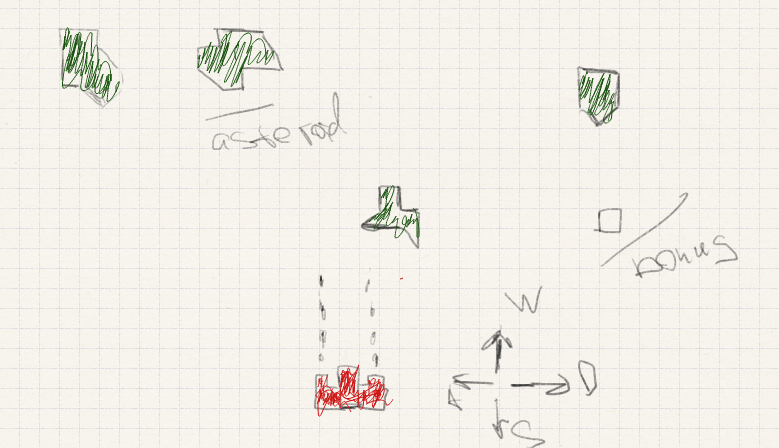 asteroid
bonus
W
A
D
S